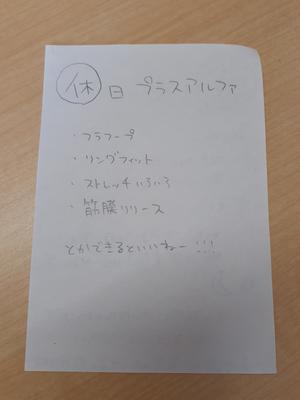 休日 プラスアルファ
・フラフープ
・リングフィット
・ストレッチいろいろ
・筋膜リリース
とかできるといいねー!!!